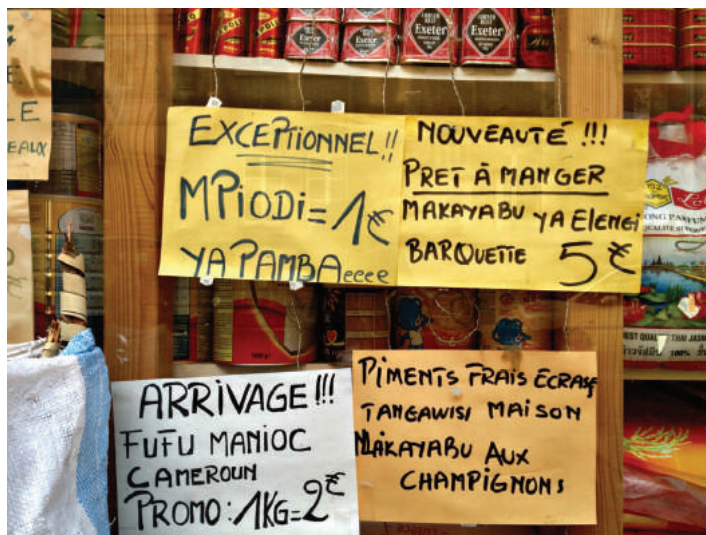 Exeter
Exeter
Exeter
Exeter
LE
EAUX
EXCEPTIONNEL!!
MPIODI = 1€
YA PAMBAeeee
NOUVEAUTÉ !!!
PRET À MANGER
MAKAYABU YA ELENGI
BARQUETTE 5€
ARRIVAGE !!!
FUFU MANIOC
CAMEROUN
PROMO : 1KG = 2€
PIMENTS FRAIS ECRASE
TANGAWISI MAISON
MAKAYABU AUX
CHAMPIGNONS
ONG PARFUM
THAI JASM
100%